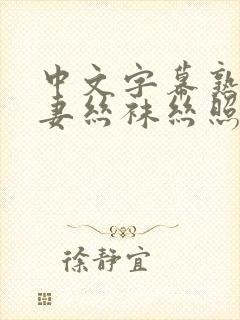 中文字幕熟
妻丝袜丝照
徐静宜